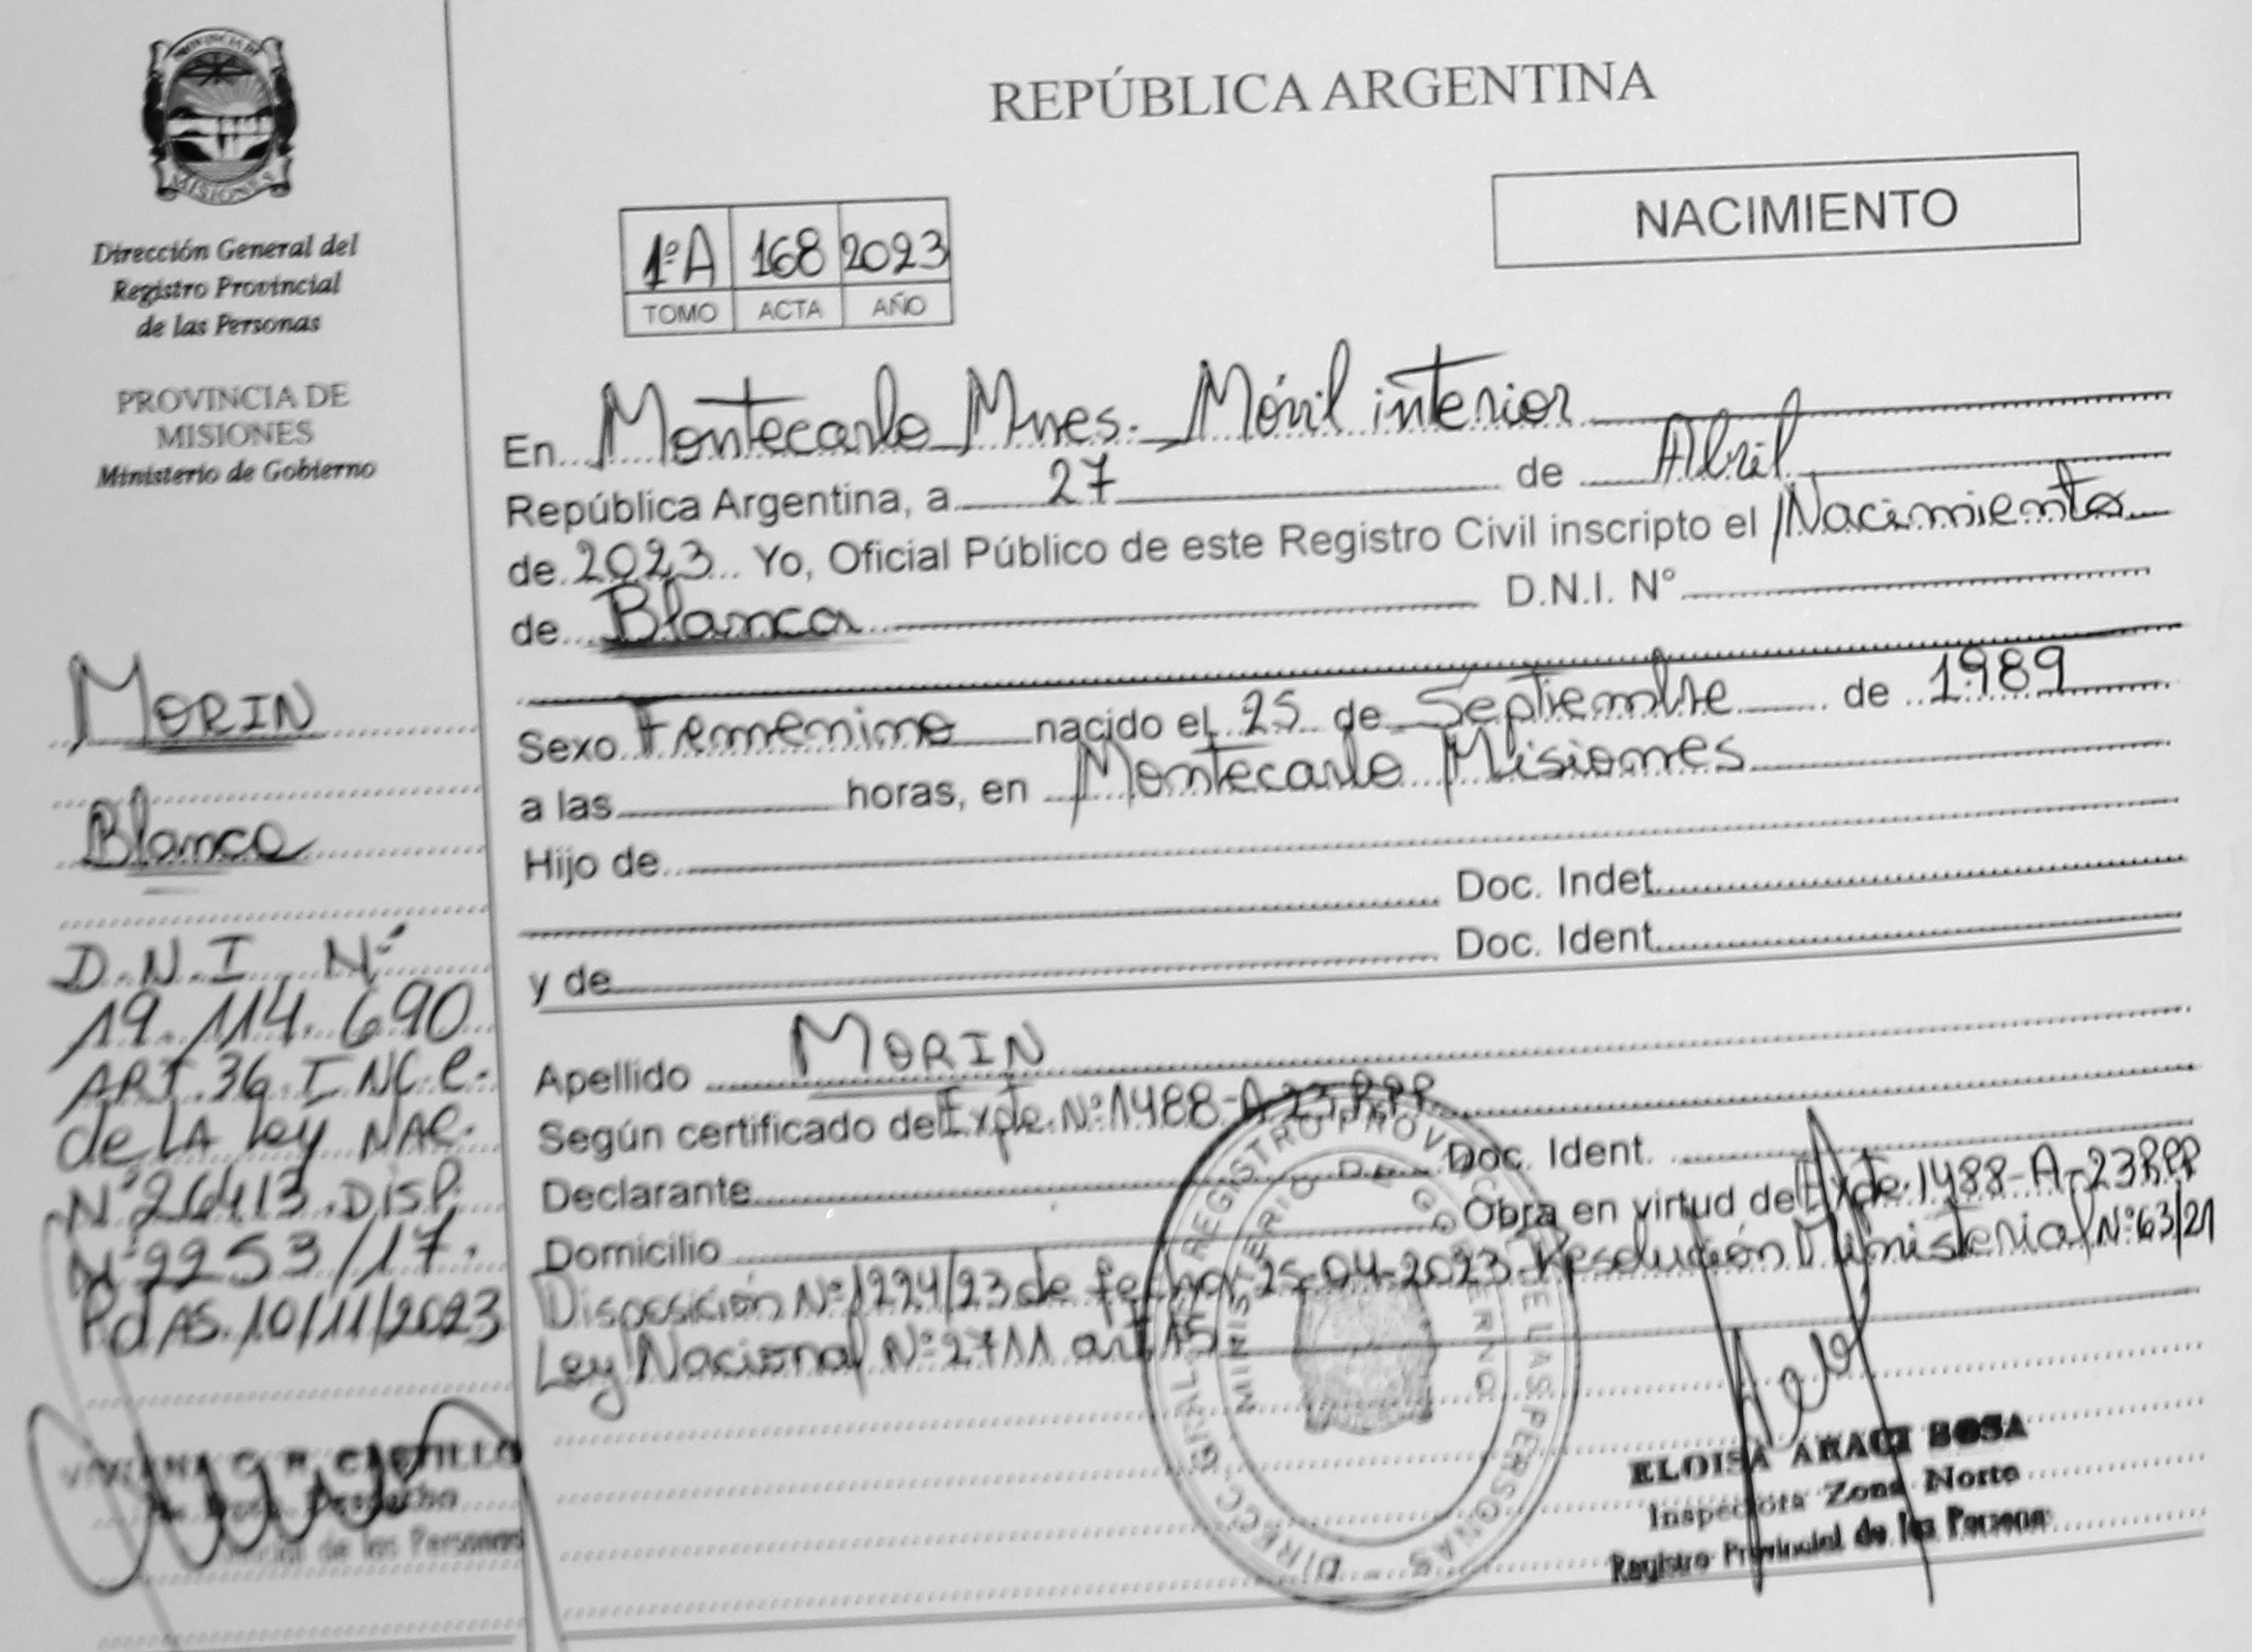 PROVINCIA DE
MISIONES
Dirección General del
Registro Provincial
de las Personas
PROVINCIA DE
MISIONES
Ministerio de Gobierno
MORIN
Blanca
D.N.I. Nº
19.114.690
ART.36 INC C.
de LA Ley NAC.
Nº26413.DISP.
Nº2253/17.
PdAS.10/11/2023
C. R. CASTILLO
Despacho
de las Personas
REPÚBLICA ARGENTINA
NACIMIENTO
1ºA 168 2023
TOMO ACTA AÑO
En Montecarlo Mnes. Móvil interior
República Argentina, a 27 de Abril
de 2023 Yo, Oficial Público de este Registro Civil inscripto el Nacimiento
de Blanca D.N.I. N°
Sexo Femenino nacido el 25 de Septiembre de 1989
a las horas, en Montecarlo Misiones
Hijo de
Doc. Indet
y de Doc. Ident
Apellido MORIN
Según certificado de Expte. Nº1488-A-23.RPP
Declarante Doc. Ident.
Domicilio Obra en virtud de Expte.1488-A-23RPP
Disposición Nº1224/23 de fecha 25-04-2023-Resolución Ministerial Nº63/21
Ley Nacional Nº2711 art 15
DIRECC. GRAL. DE REGISTRO PROVINCIAL DE LAS PERSONAS
MINISTERIO DE GOBIERNO
ELOISA ARACI BOSA
Inspectora Zona Norte
Registro Provincial de las Personas